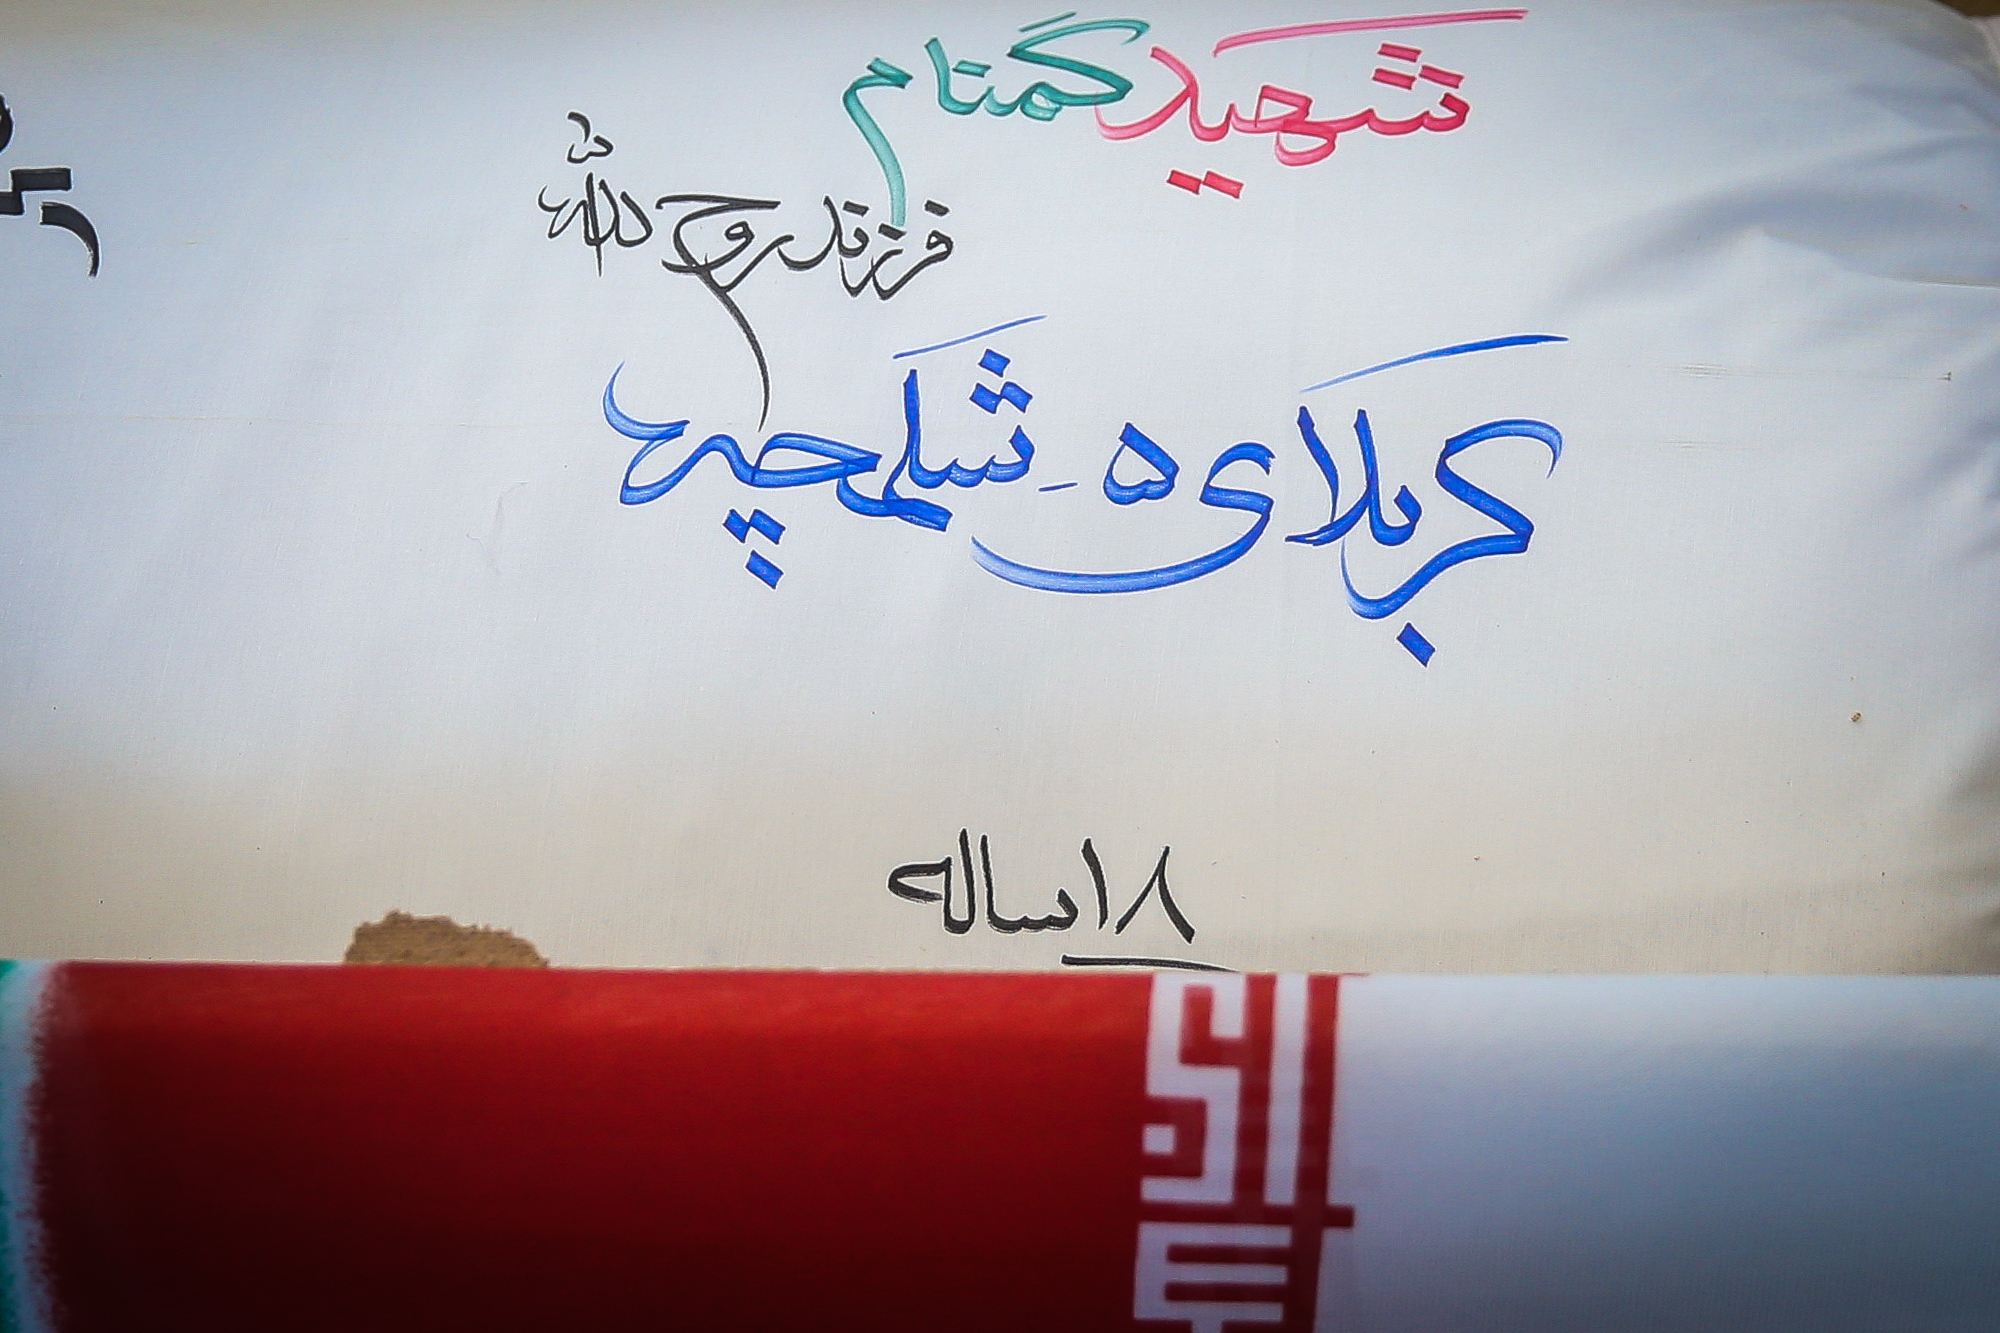 شهید گمنام
فرزند روح الله
کربلای ۵ - شلمچه
۱۸ ساله